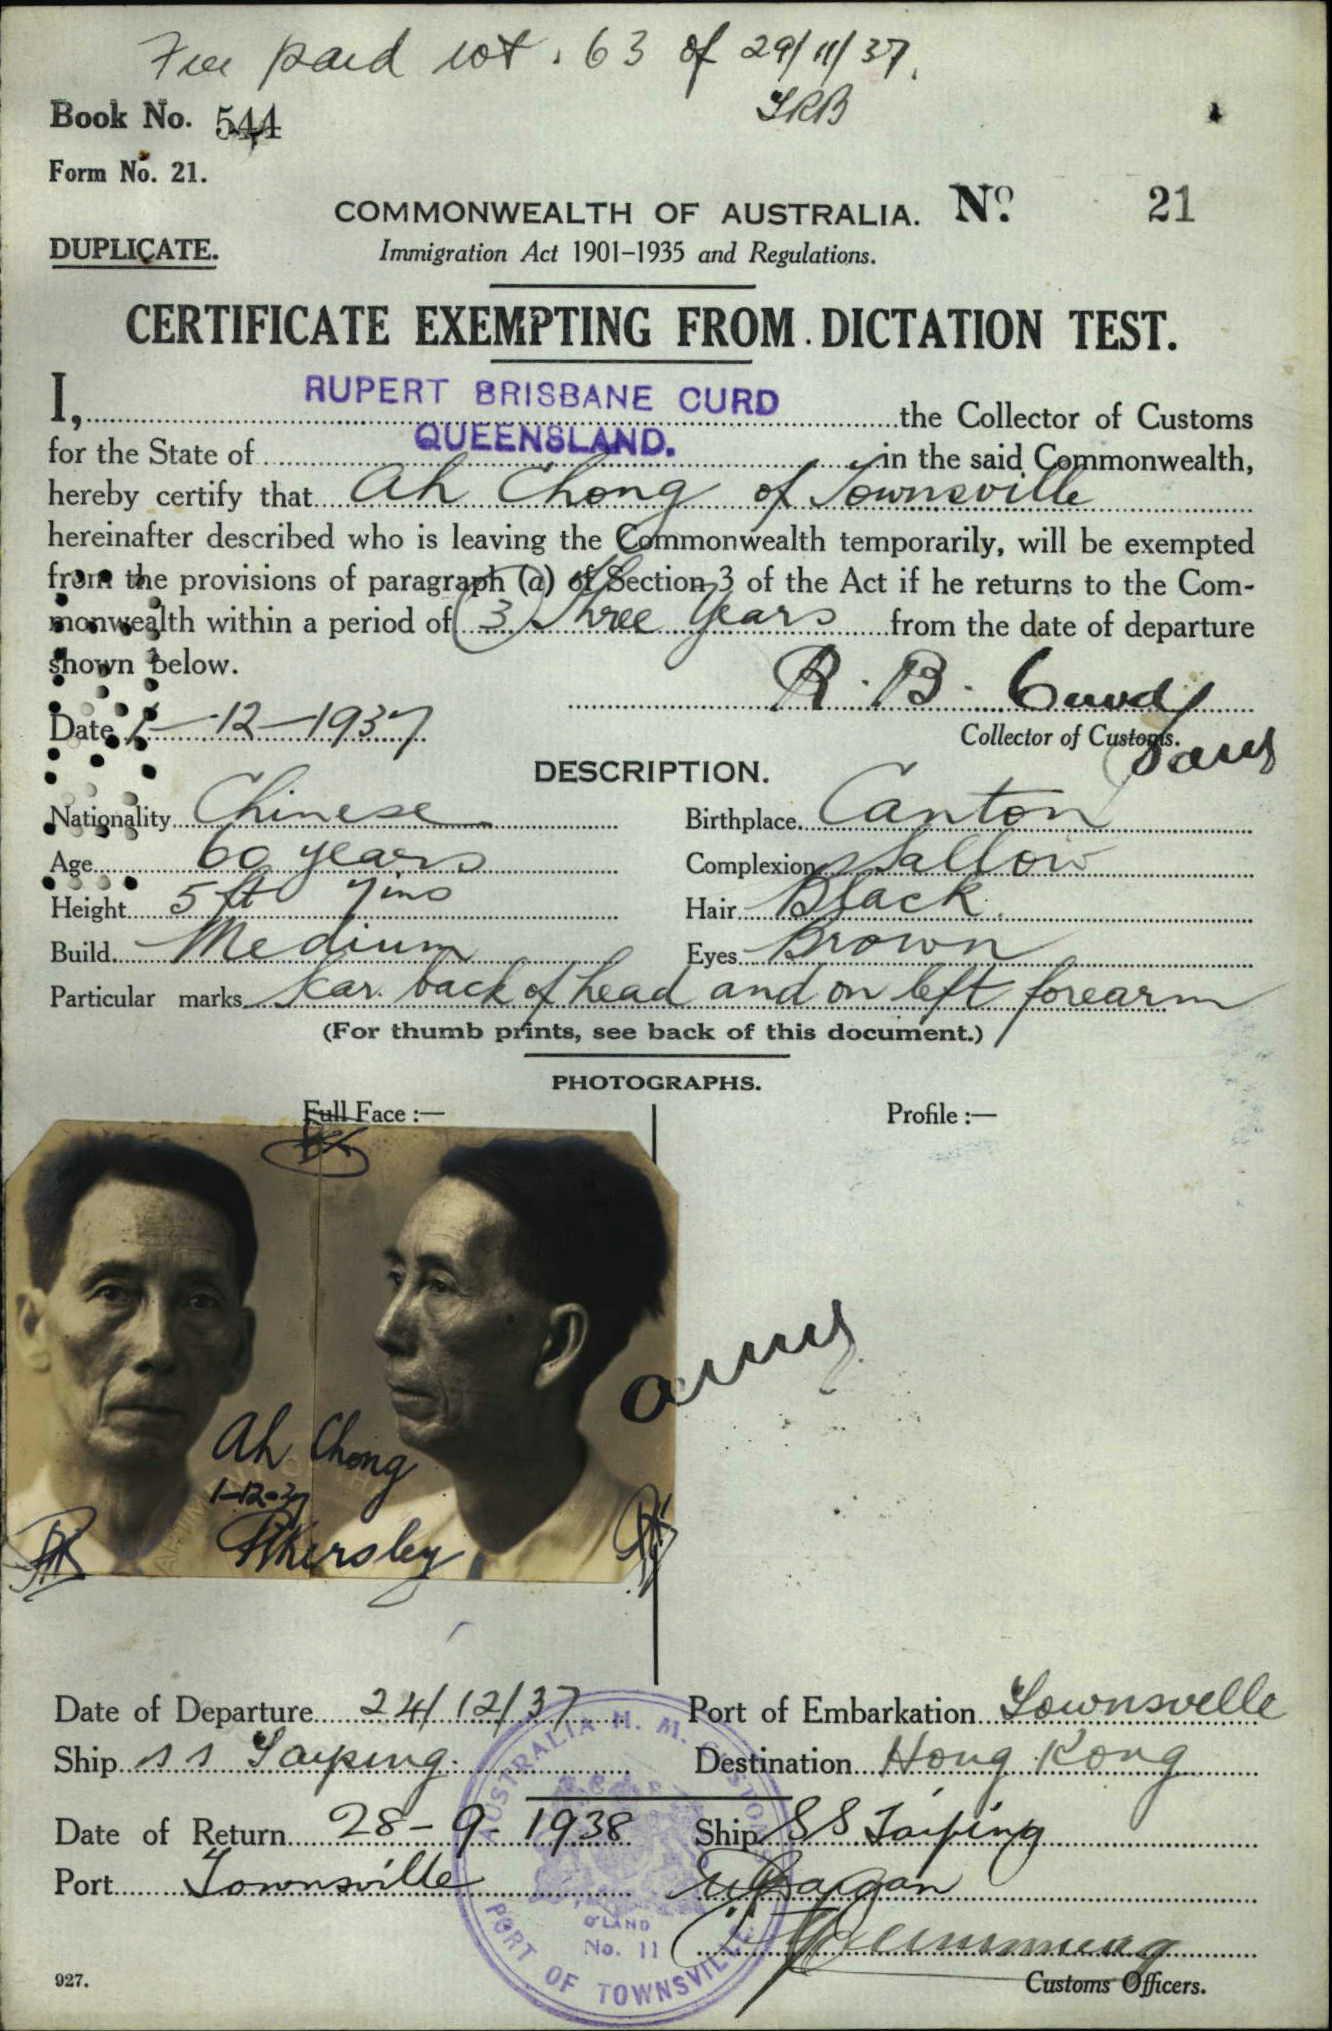 Fee paid rct. 63 of 29/11/37.
Book No. 544
Form No. 21.
COMMONWEALTH OF AUSTRALIA. No. 21
DUPLICATE.
Immigration Act 1901–1935 and Regulations.
CERTIFICATE EXEMPTING FROM DICTATION TEST.
I, RUPERT BRISBANE CURD the Collector of Customs
for the State of QUEENSLAND. in the said Commonwealth,
hereby certify that Ah Chong of Townsville
hereinafter described who is leaving the Commonwealth temporarily, will be exempted
from the provisions of paragraph (a) of Section 3 of the Act if he returns to the Com-
monwealth within a period of (3) Three Years from the date of departure
shown below.
R. B. Curd
Date 1-12-1937
Collector of Customs.
DESCRIPTION.
Nationality Chinese Birthplace Canton
Age 60 years Complexion Sallow
Height 5 ft 7 ins Hair Black
Build Medium Eyes Brown
Particular marks Scar back of head and on left forearm
(For thumb prints, see back of this document.)
PHOTOGRAPHS.
Full Face :— Profile :—
Ah Chong
1-12-37
Date of Departure 24/12/37 Port of Embarkation Townsville
Ship s s Taiping Destination Hong Kong
Date of Return 28-9-1938 Ship SS Taiping
Port Townsville
AUSTRALIA H. M. CUSTOMS
Q'LAND
No. 11
PORT OF TOWNSVILLE
927.
Customs Officers.